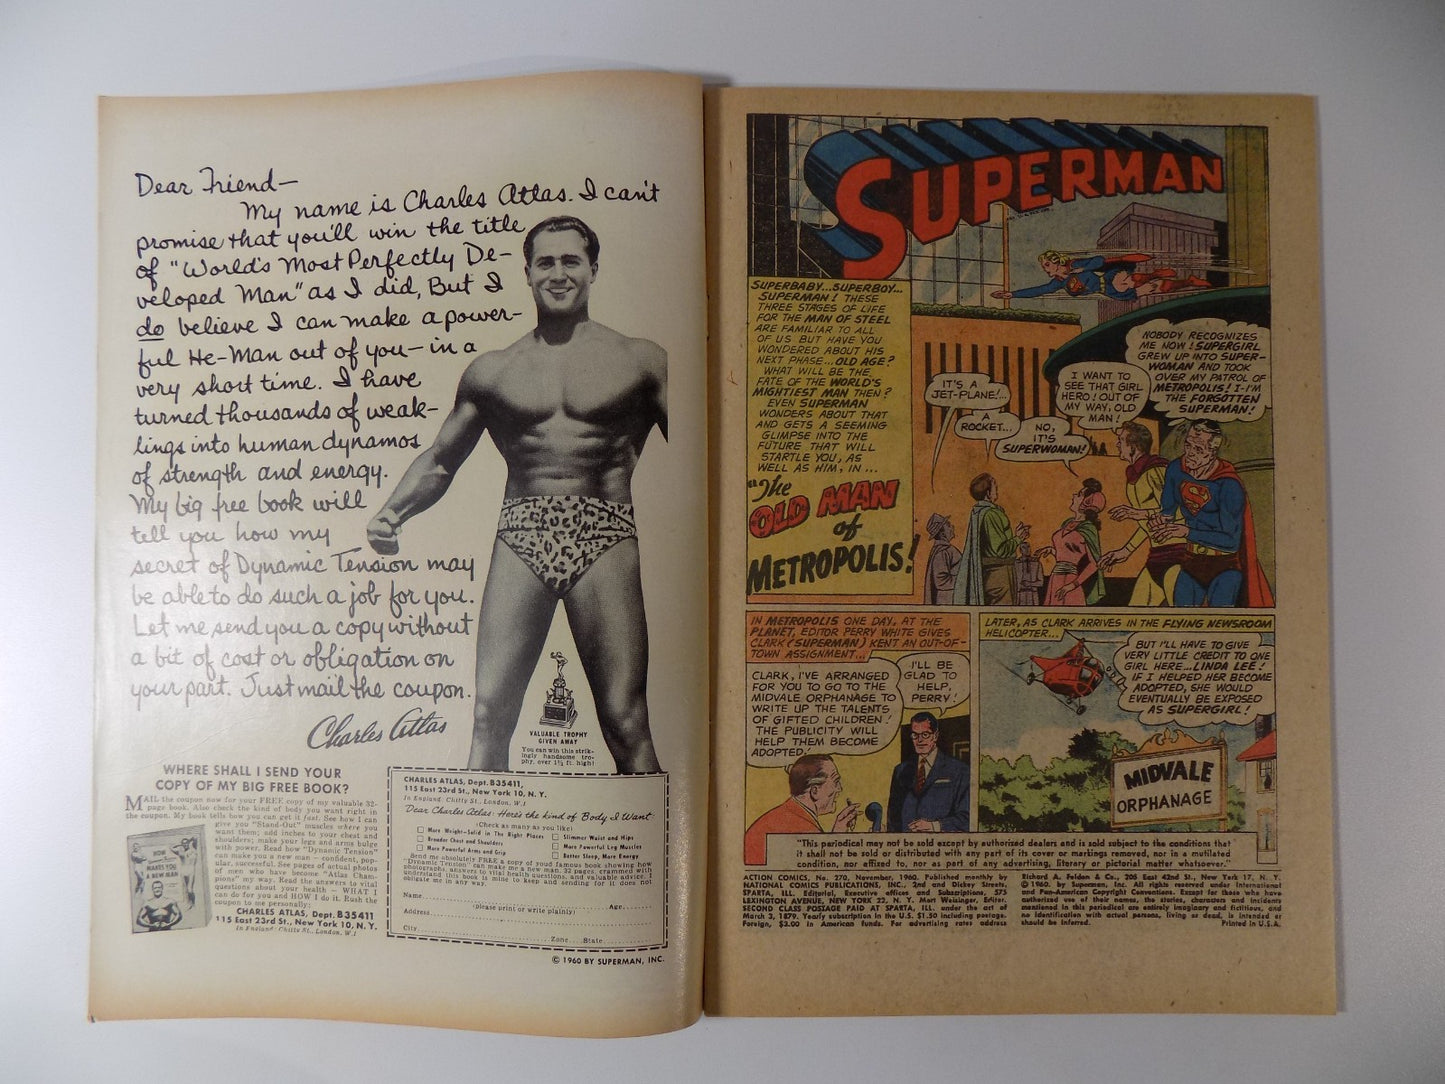 Dear Friend—
My name is Charles Atlas. I can't
promise that you'll win the title
of "World's Most Perfectly De-
veloped Man" as I did, But I
do believe I can make a power-
ful He-Man out of you—in a
very short time. I have
turned thousands of weak-
lings into human dynamos
of strength and energy.
My big free book will
tell you how my
secret of Dynamic Tension may
be able to do such a job for you.
Let me send you a copy without
a bit of cost or obligation on
your part. Just mail the coupon.
Charles Atlas
VALUABLE TROPHY
GIVEN AWAY
You can win this strik-
ingly handsome tro-
phy, over 1½ ft. high!
WHERE SHALL I SEND YOUR
COPY OF MY BIG FREE BOOK?
MAIL the coupon now for your FREE copy of my valuable 32-
page book. Also check the kind of body you want right in
the coupon. My book tells how you can get it fast. See how I can
give you "Stand-Out" muscles where you
want them; add inches to your chest and
shoulders; make your legs and arms bulge
with power. Read how "Dynamic Tension"
can make you a new man — confident, pop-
ular, successful. See pages of actual photos
of men who have become "Atlas Cham-
pions" my way. Read the answers to vital
questions about your health — WHAT I
can do for you and HOW I do it. Rush the
coupon to me personally:
CHARLES ATLAS, Dept. B35411
115 East 23rd St., New York 10, N. Y.
In England: Chitty St., London, W.1
HOW
MAKES YOU
A NEW MAN
CHARLES ATLAS, Dept. B35411,
115 East 23rd St., New York 10, N. Y.
In England: Chitty St., London, W.1
Dear Charles Atlas: Here's the kind of Body I Want:
(Check as many as you like)
More Weight—Solid in The Right Places
Broader Chest and Shoulders
More Powerful Arms and Grip
Slimmer Waist and Hips
More Powerful Leg Muscles
Better Sleep, More Energy
Send me absolutely FREE a copy of your famous book showing how
"Dynamic Tension" can make me a new man. 32 pages, crammed with
photographs, answers to vital health questions, and valuable advice. I
understand this book is mine to keep and sending for it does not
obligate me in any way.
Name Age
(please print or write plainly)
Address
City Zone State
© 1960 BY SUPERMAN, INC.
SUPERMAN
SUPERBABY...SUPERBOY...
SUPERMAN! THESE
THREE STAGES OF LIFE
FOR THE MAN OF STEEL
ARE FAMILIAR TO ALL
OF US BUT HAVE YOU
WONDERED ABOUT HIS
NEXT PHASE...OLD AGE?
WHAT WILL BE THE
FATE OF THE WORLD'S
MIGHTIEST MAN THEN?
EVEN SUPERMAN
WONDERS ABOUT THAT
AND GETS A SEEMING
GLIMPSE INTO THE
FUTURE THAT WILL
STARTLE YOU, AS
WELL AS HIM, IN...
"The
OLD MAN
of
METROPOLIS!
IT'S A
JET-PLANE!...
A
ROCKET...
NO,
IT'S
SUPERWOMAN!
I WANT TO
SEE THAT GIRL
HERO! OUT OF
MY WAY, OLD
MAN!
NOBODY RECOGNIZES
ME NOW! SUPERGIRL
GREW UP INTO SUPER-
WOMAN AND TOOK
OVER MY PATROL OF
METROPOLIS! I-I'M
THE FORGOTTEN
SUPERMAN!
IN METROPOLIS ONE DAY, AT THE
PLANET, EDITOR PERRY WHITE GIVES
CLARK (SUPERMAN) KENT AN OUT-OF-
TOWN ASSIGNMENT...
CLARK, I'VE ARRANGED
FOR YOU TO GO TO THE
MIDVALE ORPHANAGE TO
WRITE UP THE TALENTS
OF GIFTED CHILDREN!
THE PUBLICITY WILL
HELP THEM BECOME
ADOPTED!
I'LL BE
GLAD TO
HELP,
PERRY!
LATER, AS CLARK ARRIVES IN THE FLYING NEWSROOM
HELICOPTER...
BUT I'LL HAVE TO GIVE
VERY LITTLE CREDIT TO ONE
GIRL HERE...LINDA LEE!
IF I HELPED HER BECOME
ADOPTED, SHE WOULD
EVENTUALLY BE EXPOSED
AS SUPERGIRL!
MIDVALE
ORPHANAGE
"This periodical may not be sold except by authorized dealers and is sold subject to the conditions that
it shall not be sold or distributed with any part of its cover or markings removed, nor in a mutilated
condition, nor affixed to, nor as part of any advertising, literary or pictorial matter whatsoever."
ACTION COMICS, No. 270, November, 1960. Published monthly by
NATIONAL COMICS PUBLICATIONS, INC., 2nd and Dickey Streets,
SPARTA, ILL. Editorial, Executive offices and Subscriptions, 575
LEXINGTON AVENUE, NEW YORK 22, N. Y. Mort Weisinger, Editor.
SECOND CLASS POSTAGE PAID AT SPARTA, ILL. under the act of
March 3, 1879. Yearly subscription in the U. S. $1.50 including postage.
Foreign, $3.00 in American funds. For advertising rates address
Richard A. Feldon & Co., 205 East 42nd St., New York 17, N. Y.
© 1960. by Superman, Inc. All rights reserved under International
and Pan-American Copyright Conventions. Except for those who have
authorized use of their names, the stories, characters and incidents
mentioned in this periodical are entirely imaginary and fictitious, and
no identification with actual persons, living or dead, is intended or
should be inferred. Printed in U.S.A.